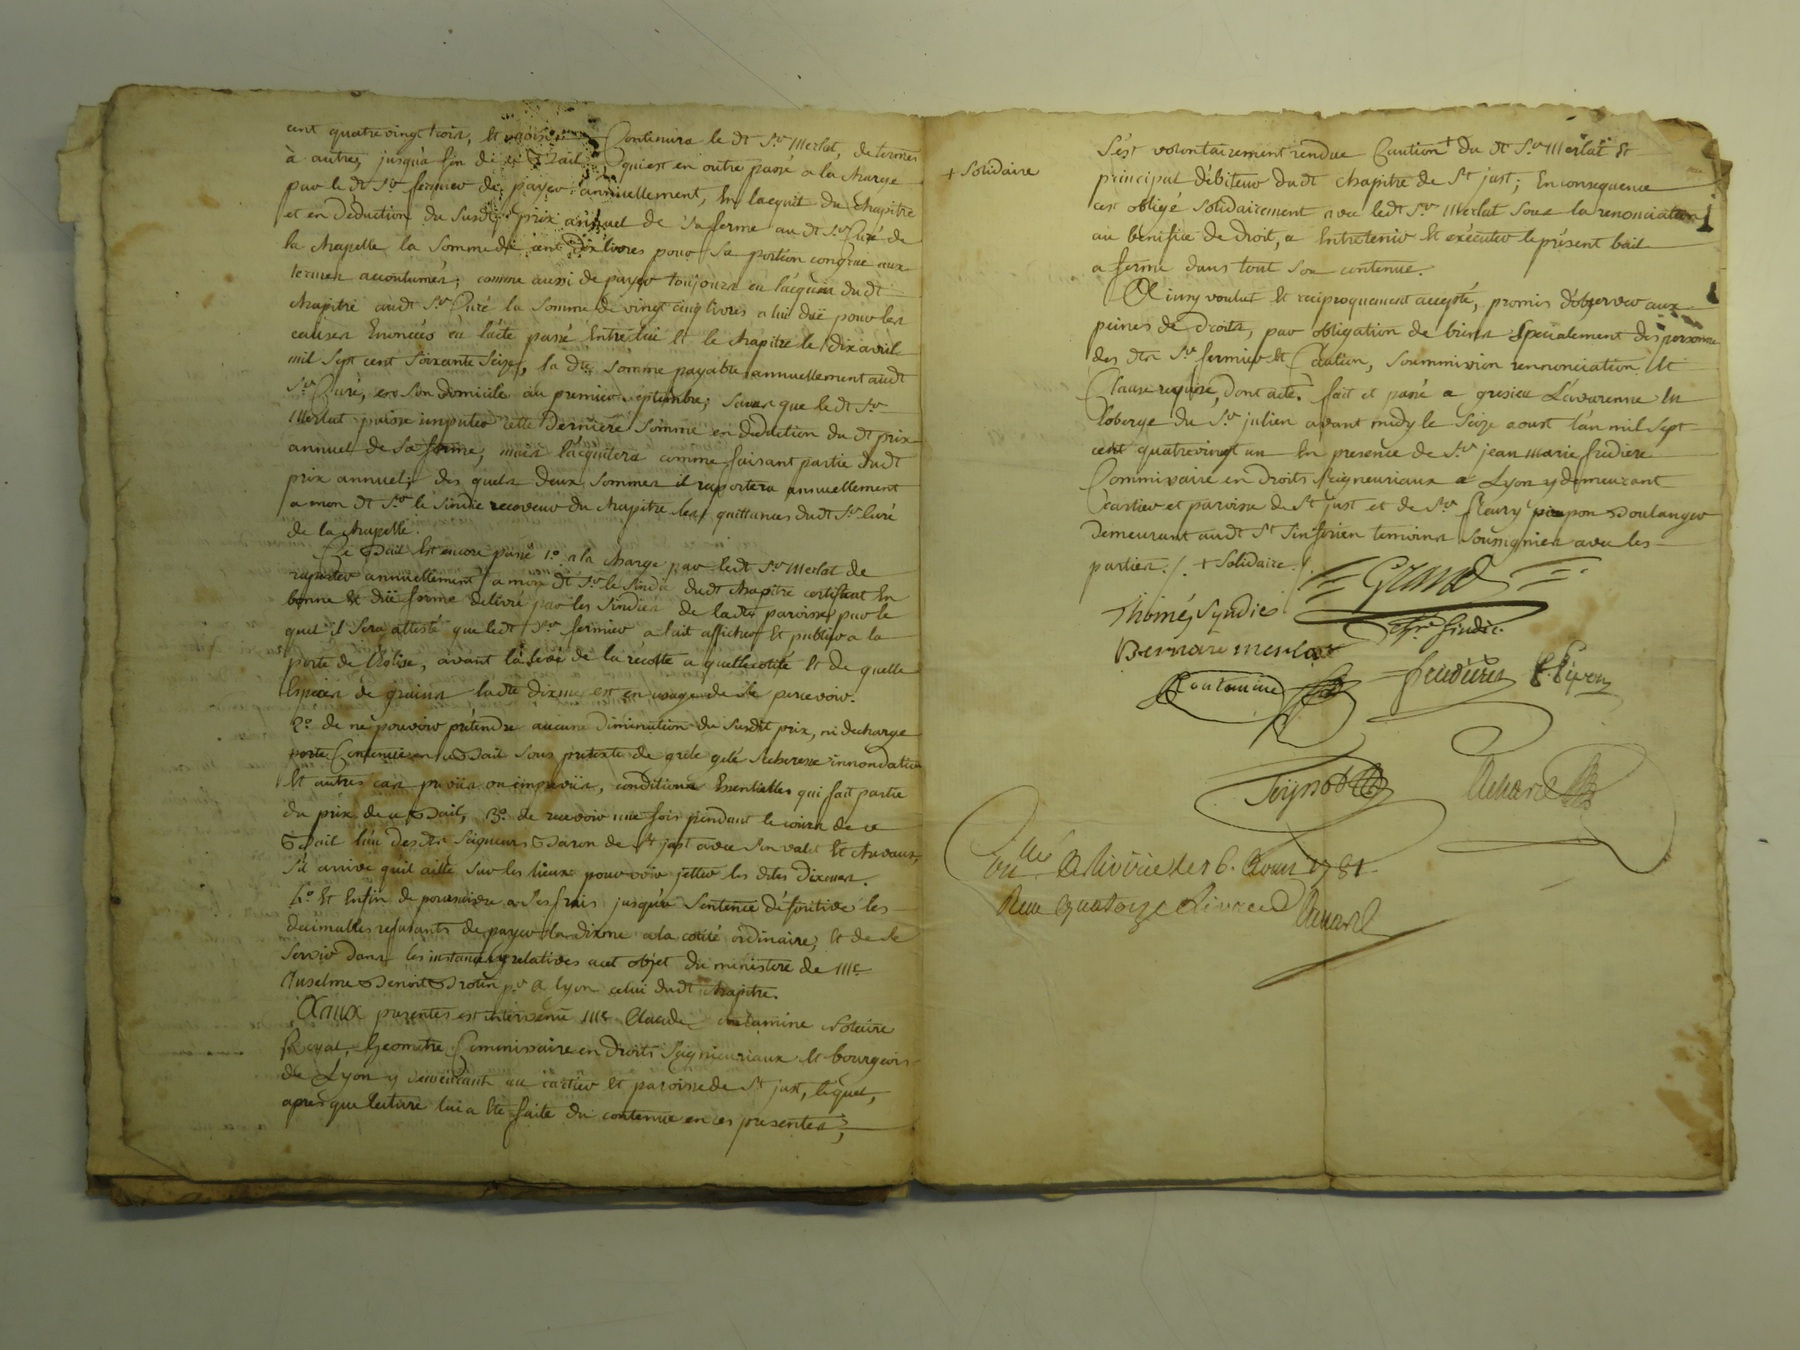 cent quatrevingt trois, Et ainsi Continura le dt Sr Merlat, de termes
à autres jusqu'à fin de ce Bail, qui est en outre passé a la charge
par le dt Sr fermier de payer annuellement, En lacquit du chapitre
et en déduction du susdt prix annuel de sa ferme au dt Sr Curé de
la chapelle la somme de cent dix livres pour sa portion congrue aux
termes accoutumés; comme aussi de payer toujours en l'acquit dudt
chapitre audt Sr Curé la somme de vingt cinq livres a lui düe pour les
causes Enoncées en l'acte passé Entre lui et le chapitre le dix avril
mil sept cent soixante seize, la dte somme payable annuellement audt
Sr Curé, en son domicile au premier septembre; sans que le dt Sr
Merlat puisse imputer cette Dernière somme en déduction du dt prix
annuel de sa ferme, mais l'acquitera comme faisant partie dudt
prix annuel; des quels deux sommes il raportera annuellement
a mon dt Sr le sindic receveur du chapitre les quittances dudt Sr Curé
de la chapelle.
Ce Bail Est encore passé 1.o a la charge par ledt Sr Merlat de
raporter annuellement a mon dt Sr le sindic dudt chapitre certificat En
bonne et düe forme délivré par les sindics de la dte paroisse par le
quel il sera attesté que ledt Sr fermier a fait afficher Et publier a la
porte de l'Eglise, avant la levée de la récolte a quelle cotité Et de quelle
Espèces de grains ladte dixme est en usage de se percevoir.
2.o de ne pouvoir prétendre aucune diminution du susdit prix, ni decharge
porte Contenue en ce Bail sous prétexte de grêle gelé secheresse innondation
Et autres cas prévus ou imprévus, conditions Essentielles qui fait partie
du prix de ce Bail, 3.o de recevoir une fois pendant le cours de ce
Bail l'un desdts Seigneurs Baron de St just avec son valet Et chevaux,
s'il arrive quil aille sur les lieux pour voir jetter les dites dixmes.
4.o Et Enfin de poursuivre a ses frais jusqu'à sentence définitive les
decimables refusants de payer la dixme a la cotité ordinaire, Et de se
servir dans les instances relatives a cet objet du ministere de Me
Anselme Benoit Brotin pr a lyon celui dudt chapitre.
Aux presentes est intervenu Me Claude Contamine Notaire
Royal, Geometre Commissaire en droits seigneuriaux Et bourgeois
de Lyon y demeurant au cartier Et paroisse de St just, lequel,
apres que lecture lui a Eté faite du contenue en ces presentes,
+ solidaire
s'est volontairement rendue Caution + du dt Sr Merlat Et
principal débiteur dudt chapitre de St just; En conséquence
cest obligé solidairement avec ledt Sr Merlat sous la renonciation
au bénéfice de droit, a Entretenir Et exécuter le présent bail
a ferme dans tout son contenue.
Ainsy voulut Et réciproquement accepté, promis d'observer aux
peines de droits, par obligation de biens spécialement des personnes
des dts Srs fermier Et Caution, soummission rennonciation Et
Clause requise, dont acte. fait et passé a gresieu Lavarenne En
l'oberge du Sr julien avant midy le seize aoust l'an mil sept
cent quatrevingt un En presence de Sr jean marie fredière
Commissaire en droits seigneuriaux a Lyon y demeurant
Cartier et paroisse de St just et de Sr fleury Boulanger
demeurant audt St Sinforien temoins soussignés avec les
parties. /. + Solidaire. /.
Grand
Thomé, Syndic
Sindic.
Bernard merlat
Contamine
fredière
Richard
Con.llé A le 26. Aoust 1781
Reçu quatorze Livres
Richard